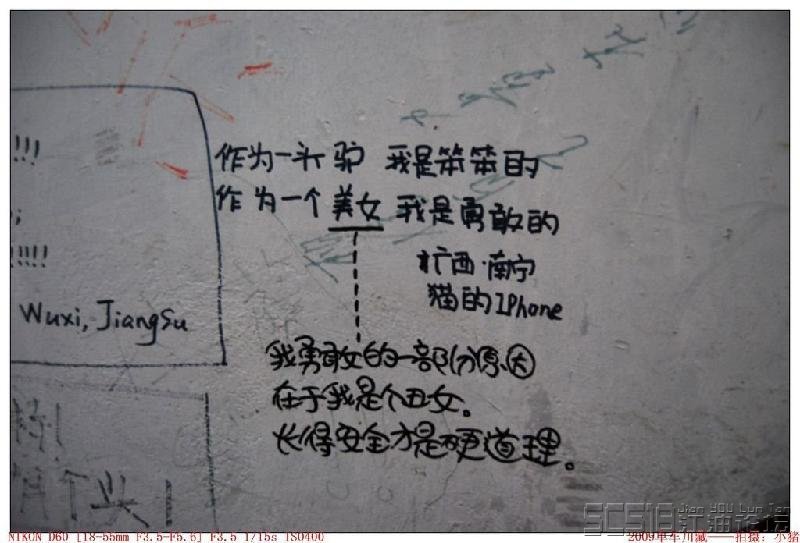 !!!
!!!!
Wuxi, JiangSu
作为一头驴 我是笨笨的
作为一个美女 我是勇敢的
广西·南宁
猫的IPhone
我勇敢的一部分原因
在于我是个丑女。
长得安全才是硬道理。
个头!
NIKON D60 [18-55mm F3.5-F5.6] F3.5 1/15s ISO400
2009单车川藏——拍摄:小猪